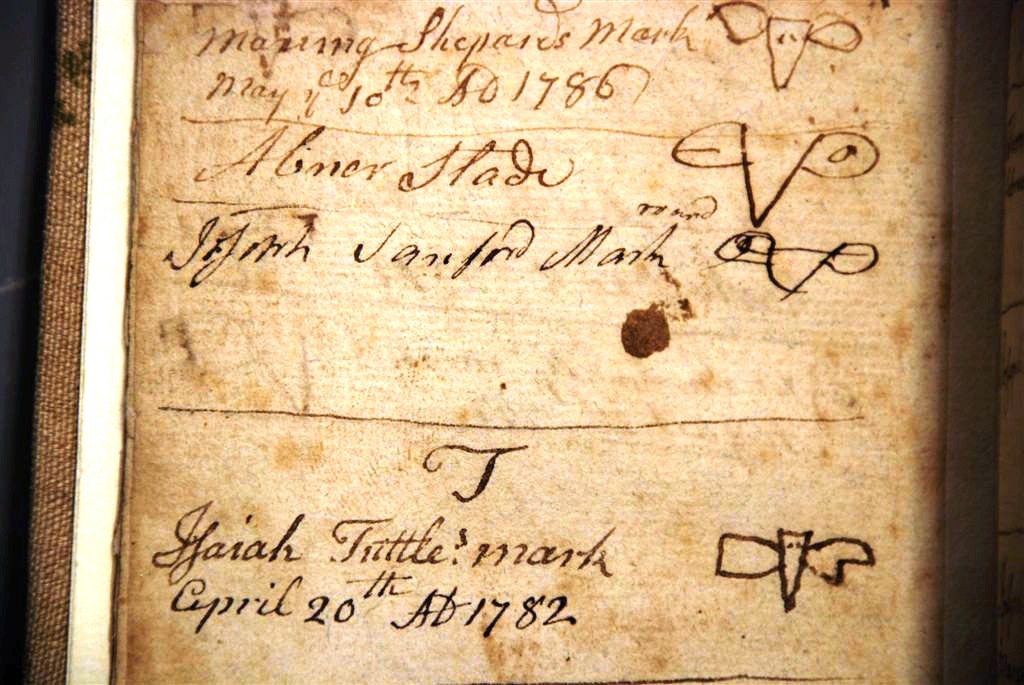 Shepard's Mark
May ye 10th AD 1786
Abner Slade
round
Joseph Sanford Mark
T
Isaiah Tuttle's mark
April 20th AD 1782